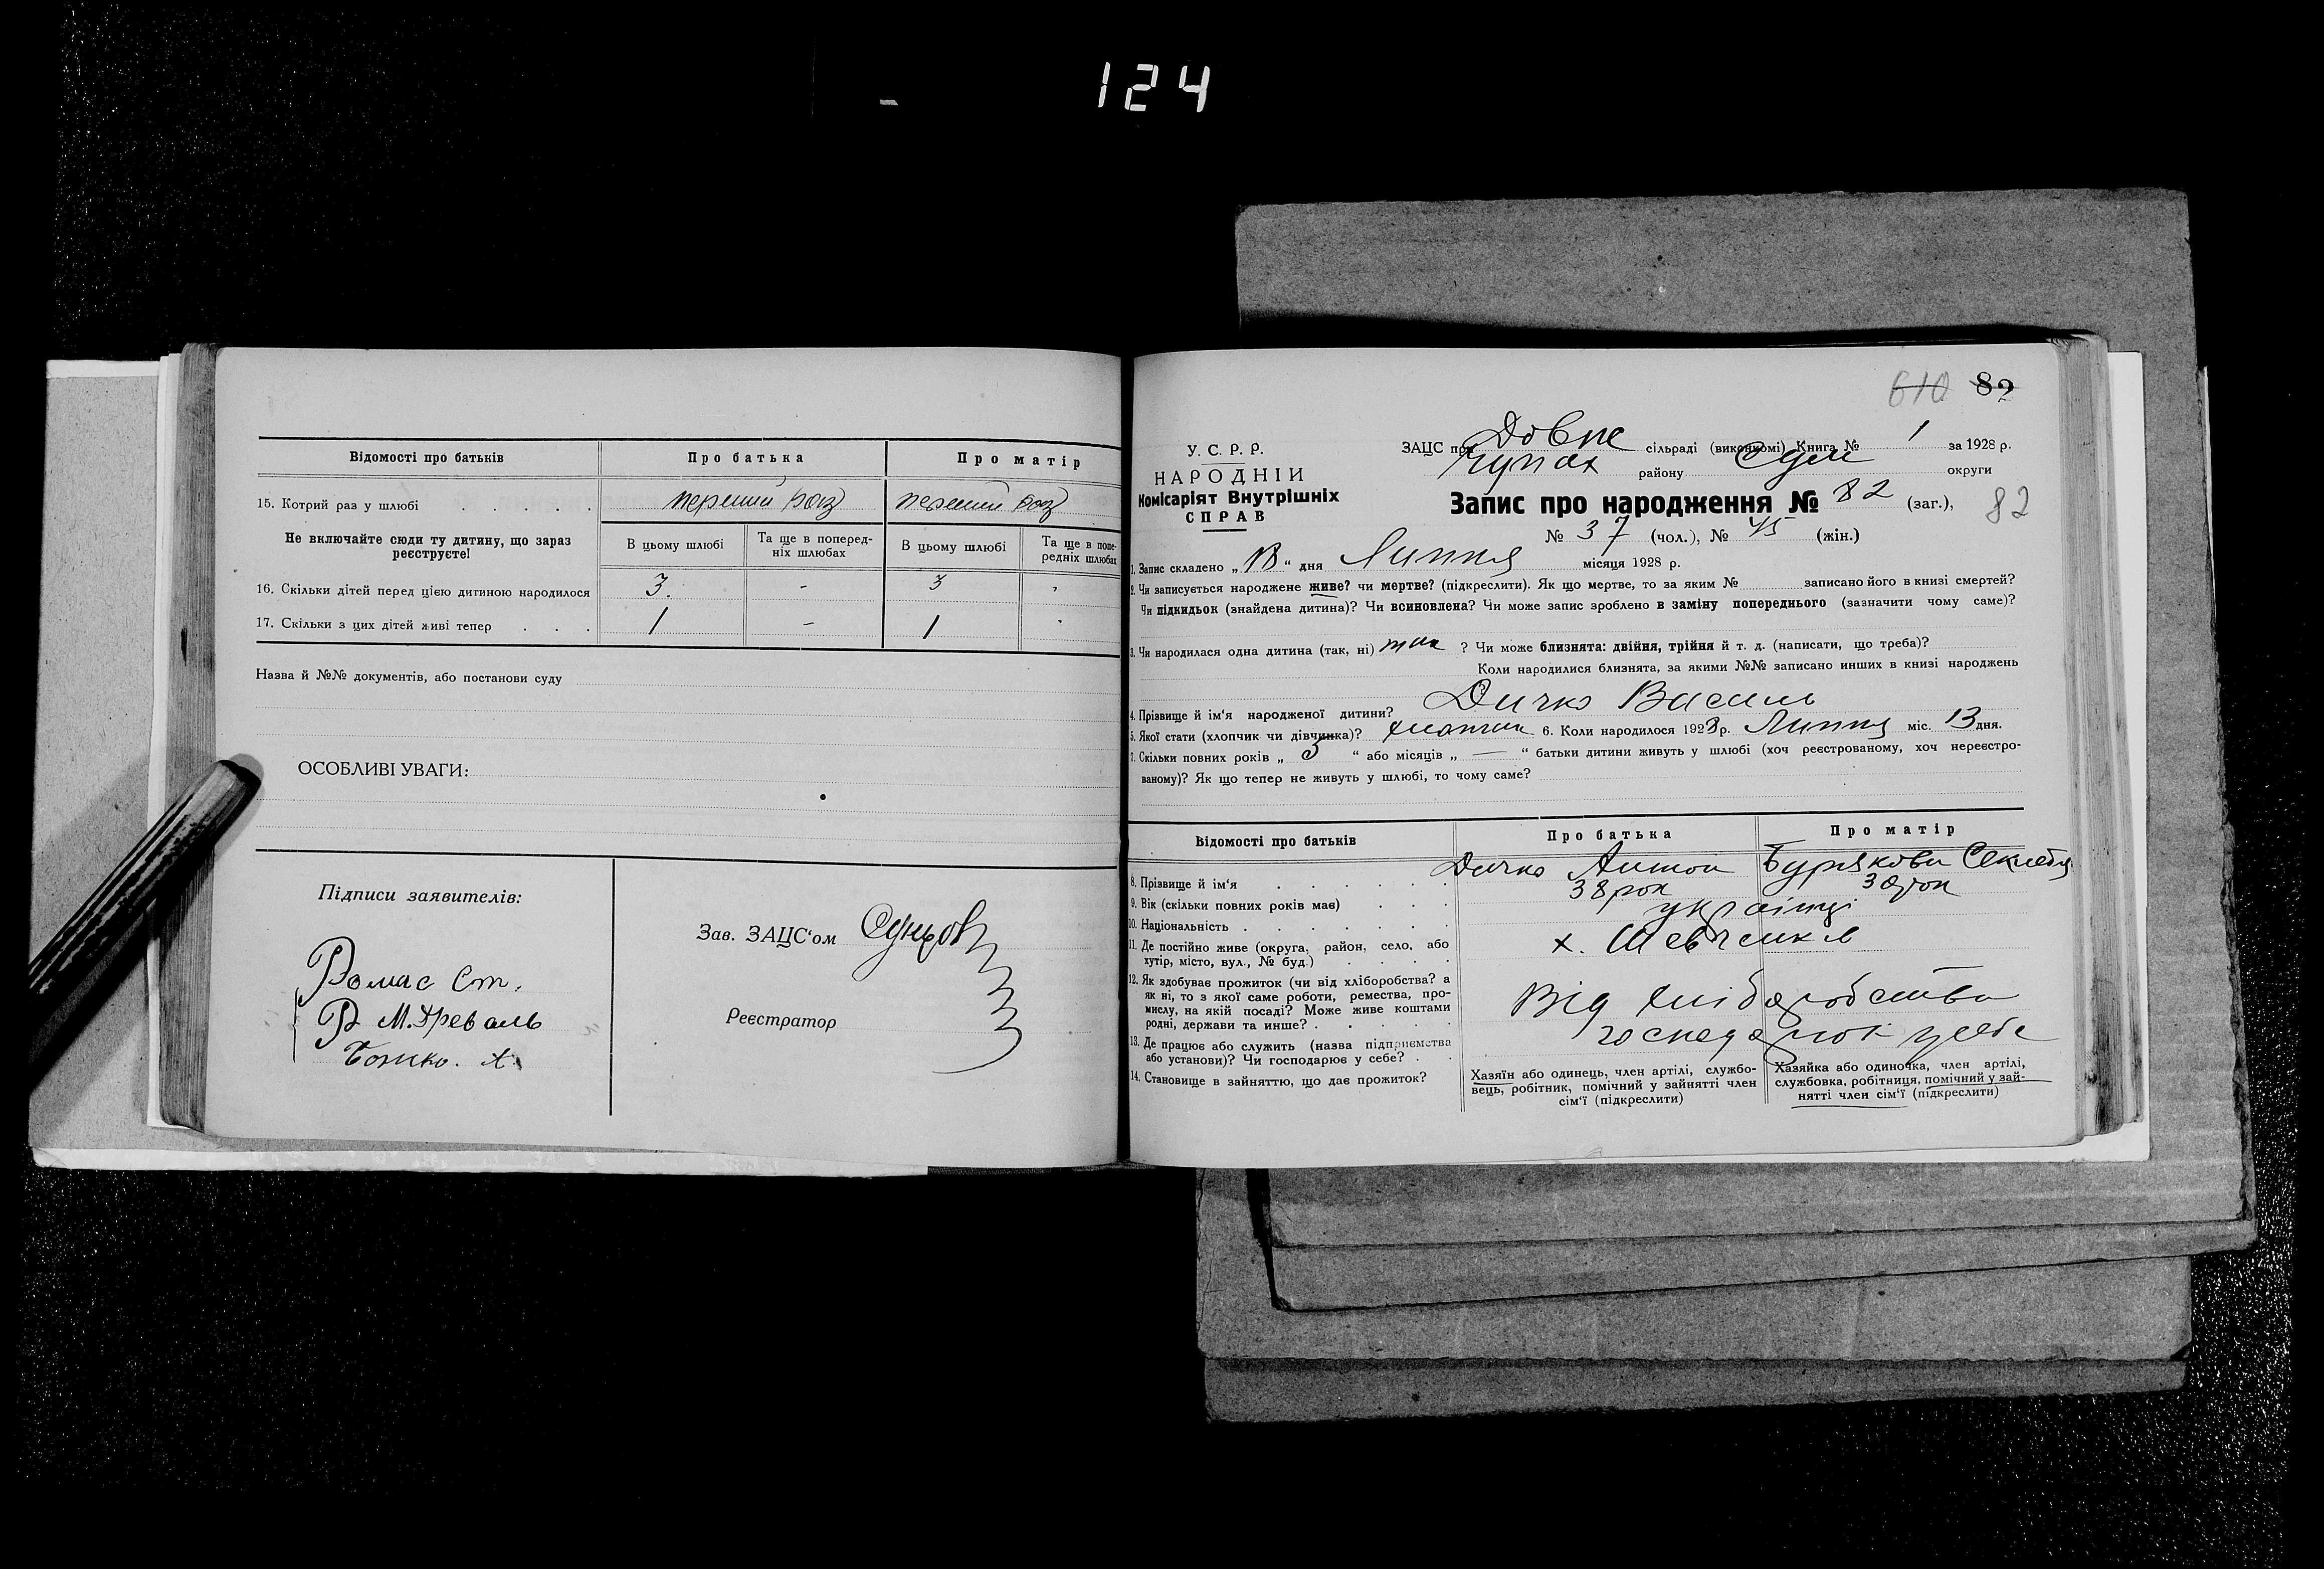 124
Відомості про батьків Про батька Про матір
15. Котрий раз у шлюбі . . . . . перший раз перший раз
Не включайте сюди ту дитину, що зараз реєструєте!
В цьому шлюбі Та ще в поперед-ніх шлюбах В цьому шлюбі Та ще в попе-редніх шлюбах
16. Скільки дітей перед цією дитиною народилося 3. - 3
17. Скільки з цих дітей живі тепер . . . 1 - 1
Назва й №№ документів, або постанови суду
ОСОБЛИВІ УВАГИ:
Підписи заявителів:
Ромас Ст.
М. Древаль
Божко. А.
Зав. ЗАЦС'ом
Реєстратор
610 82
У. С. Р. Р.
НАРОДНІЙ
Комісаріят Внутрішніх
СПРАВ
ЗАЦС при Довпе сільраді (виконкомі) Книга № 1 за 1928 р.
району Сум округи
Запис про народження № 82 (заг.), 82
№ 37 (чол.), № 45 (жін.)
1. Запис складено „ “ дня Липня місяця 1928 р.
2. Чи записується народжене живе? чи мертве? (підкреслити). Як що мертве, то за яким № записано його в книзі смертей?
Чи підкидьок (знайдена дитина)? Чи всиновлена? Чи може запис зроблено в заміну попереднього (зазначити чому саме)?
3. Чи народилася одна дитина (так, ні) так ? Чи може близнята: двійня, трійня й т. д. (написати, що треба)?
Коли народилися близнята, за якими №№ записано инших в книзі народжень
4. Прізвище й ім'я народженої дитини? Дичко Василь
5. Якої стати (хлопчик чи дівчинка)? хлопчик 6. Коли народилося 1928 р. Липня міс. 13 дня.
7. Скільки повних років „ 3 “ або місяців „ — “ батьки дитини живуть у шлюбі (хоч реєстрованому, хоч нереєстро-
ваному)? Як що тепер не живуть у шлюбі, то чому саме?
Відомості про батьків Про батька Про матір
8. Прізвище й ім'я . . . . . . Дичко Антон Бурякова Секлета
9. Вік (скільки повних років має) . . . 38 рок
10. Національність . . . . . . . українці
11. Де постійно живе (округа, район, село, або
хутір, місто, вул., № буд.) . . . . х. Шевченків
12. Як здобуває прожиток (чи від хліборобства? а
як ні, то з якої саме роботи, ремества, про-
мислу, на якій посаді? Може живе коштами
родні, держави та инше? . . . . . Від хліборобства
13. Де працює або служить (назва підприємства
або установи)? Чи господарює у себе? . .
14. Становище в зайняттю, що дає прожиток?
Хазяїн або одинець, член артілі, службо-
вець, робітник, помічний у зайнятті член
сім'ї (підкреслити)
Хазяйка або одиночка, член артілі,
службовка, робітниця, помічний у зай-
нятті член сім'ї (підкреслити)